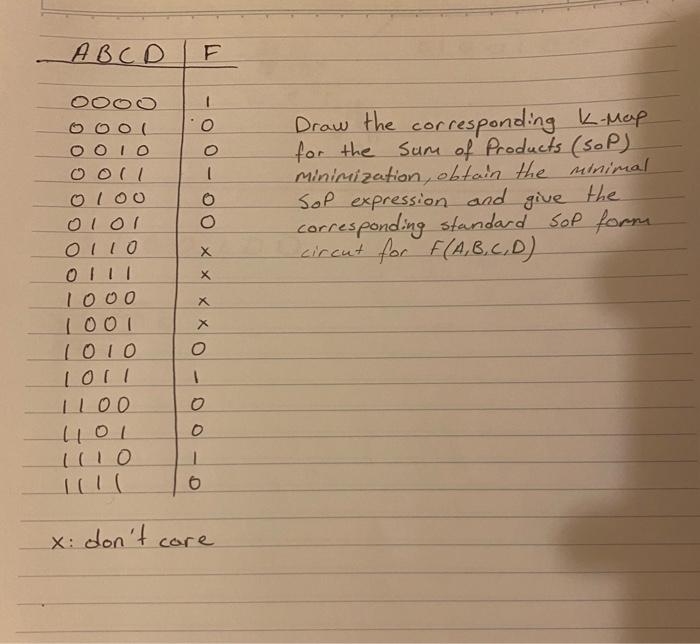 A B C D F
0000 1
0001 0
0010 0
0011 1
0100 0
0101 0
0110 x
0111 x
1000 x
1001 x
1010 0
1011 1
1100 0
1101 0
1110 1
1111 0
Draw the corresponding K-Map
for the Sum of Products (SoP)
minimization, obtain the minimal
SoP expression and give the
corresponding standard SoP form
circut for F(A,B,C,D)
x: don't care